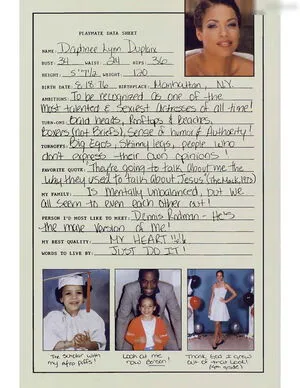 PLAYMATE DATA SHEET
NAME: Daphnee Lynn Duplaix
BUST: 34 WAIST: 24 HIPS: 36
HEIGHT: 5'7½ WEIGHT: 120
BIRTH DATE: 8/18/76 BIRTHPLACE: Manhattan, N.Y.
AMBITIONS: To be recognized as one of the
Most talented & Sexiest Actresses of all time!
TURN-ONS: Bald heads, Rooftops & Beaches,
Boxers (not Briefs), Sense of humor & Authority!
TURNOFFS: Big Egos, Skinny legs, people who
don't express their own opinions!
FAVORITE QUOTE: "They're going to talk about me the
way they used to talk about Jesus" (The Mack, 1973)
MY FAMILY: Is Mentally Unbalanced, but we
all seem to even each other out!
PERSON I'D MOST LIKE TO MEET: Dennis Rodman - He's
the male version of me!
MY BEST QUALITY: MY HEART!!
WORDS TO LIVE BY: JUST DO IT!
The scholar with
my afro puffs!
Look at me
now Person!
Thank God I grew
out of that look!
(9th grade)